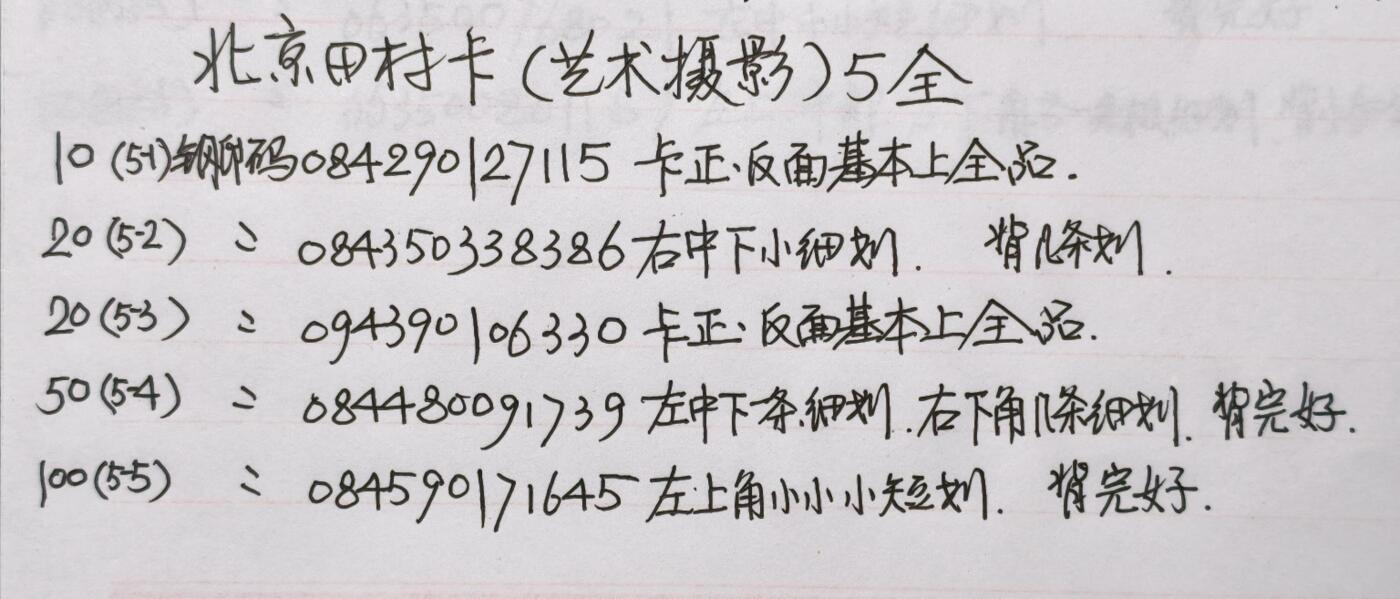 北京田村卡(艺术摄影)5全
10(5-1)钢印码084290127115 卡正.反面基本上全品.
20(5-2) 〃 084350338386右中下小细划. 背几条划.
20(5-3) 〃 094390106330 卡正.反面基本上全品.
50(5-4) 〃 084480091739左中下条细划.右下角几条细划. 背完好.
100(5-5) 〃 084590171645左上角小小小短划. 背完好.